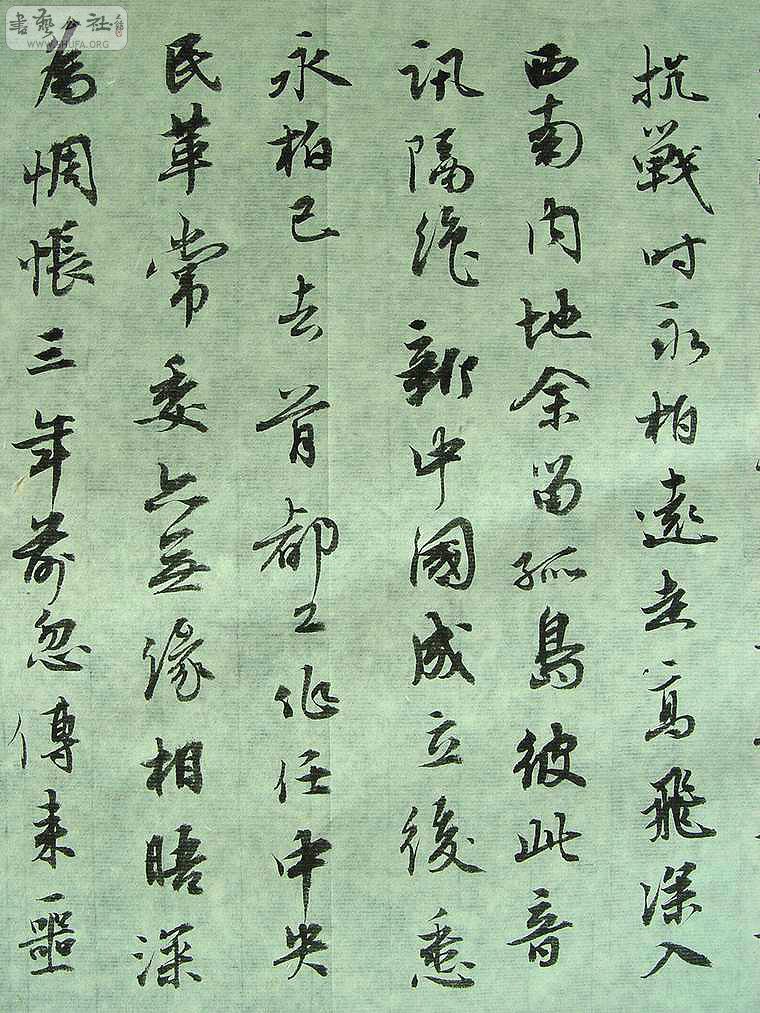 抗戰時永柏遠走高飛深入
西南内地余留孤島彼此音
訊隔絶新中國成立後悉
永柏已去首都工作任中央
民革常委六無緣相晤深
為惆悵三年前忽傳来噩
書藝公社
WWW.SHUFA.ORG